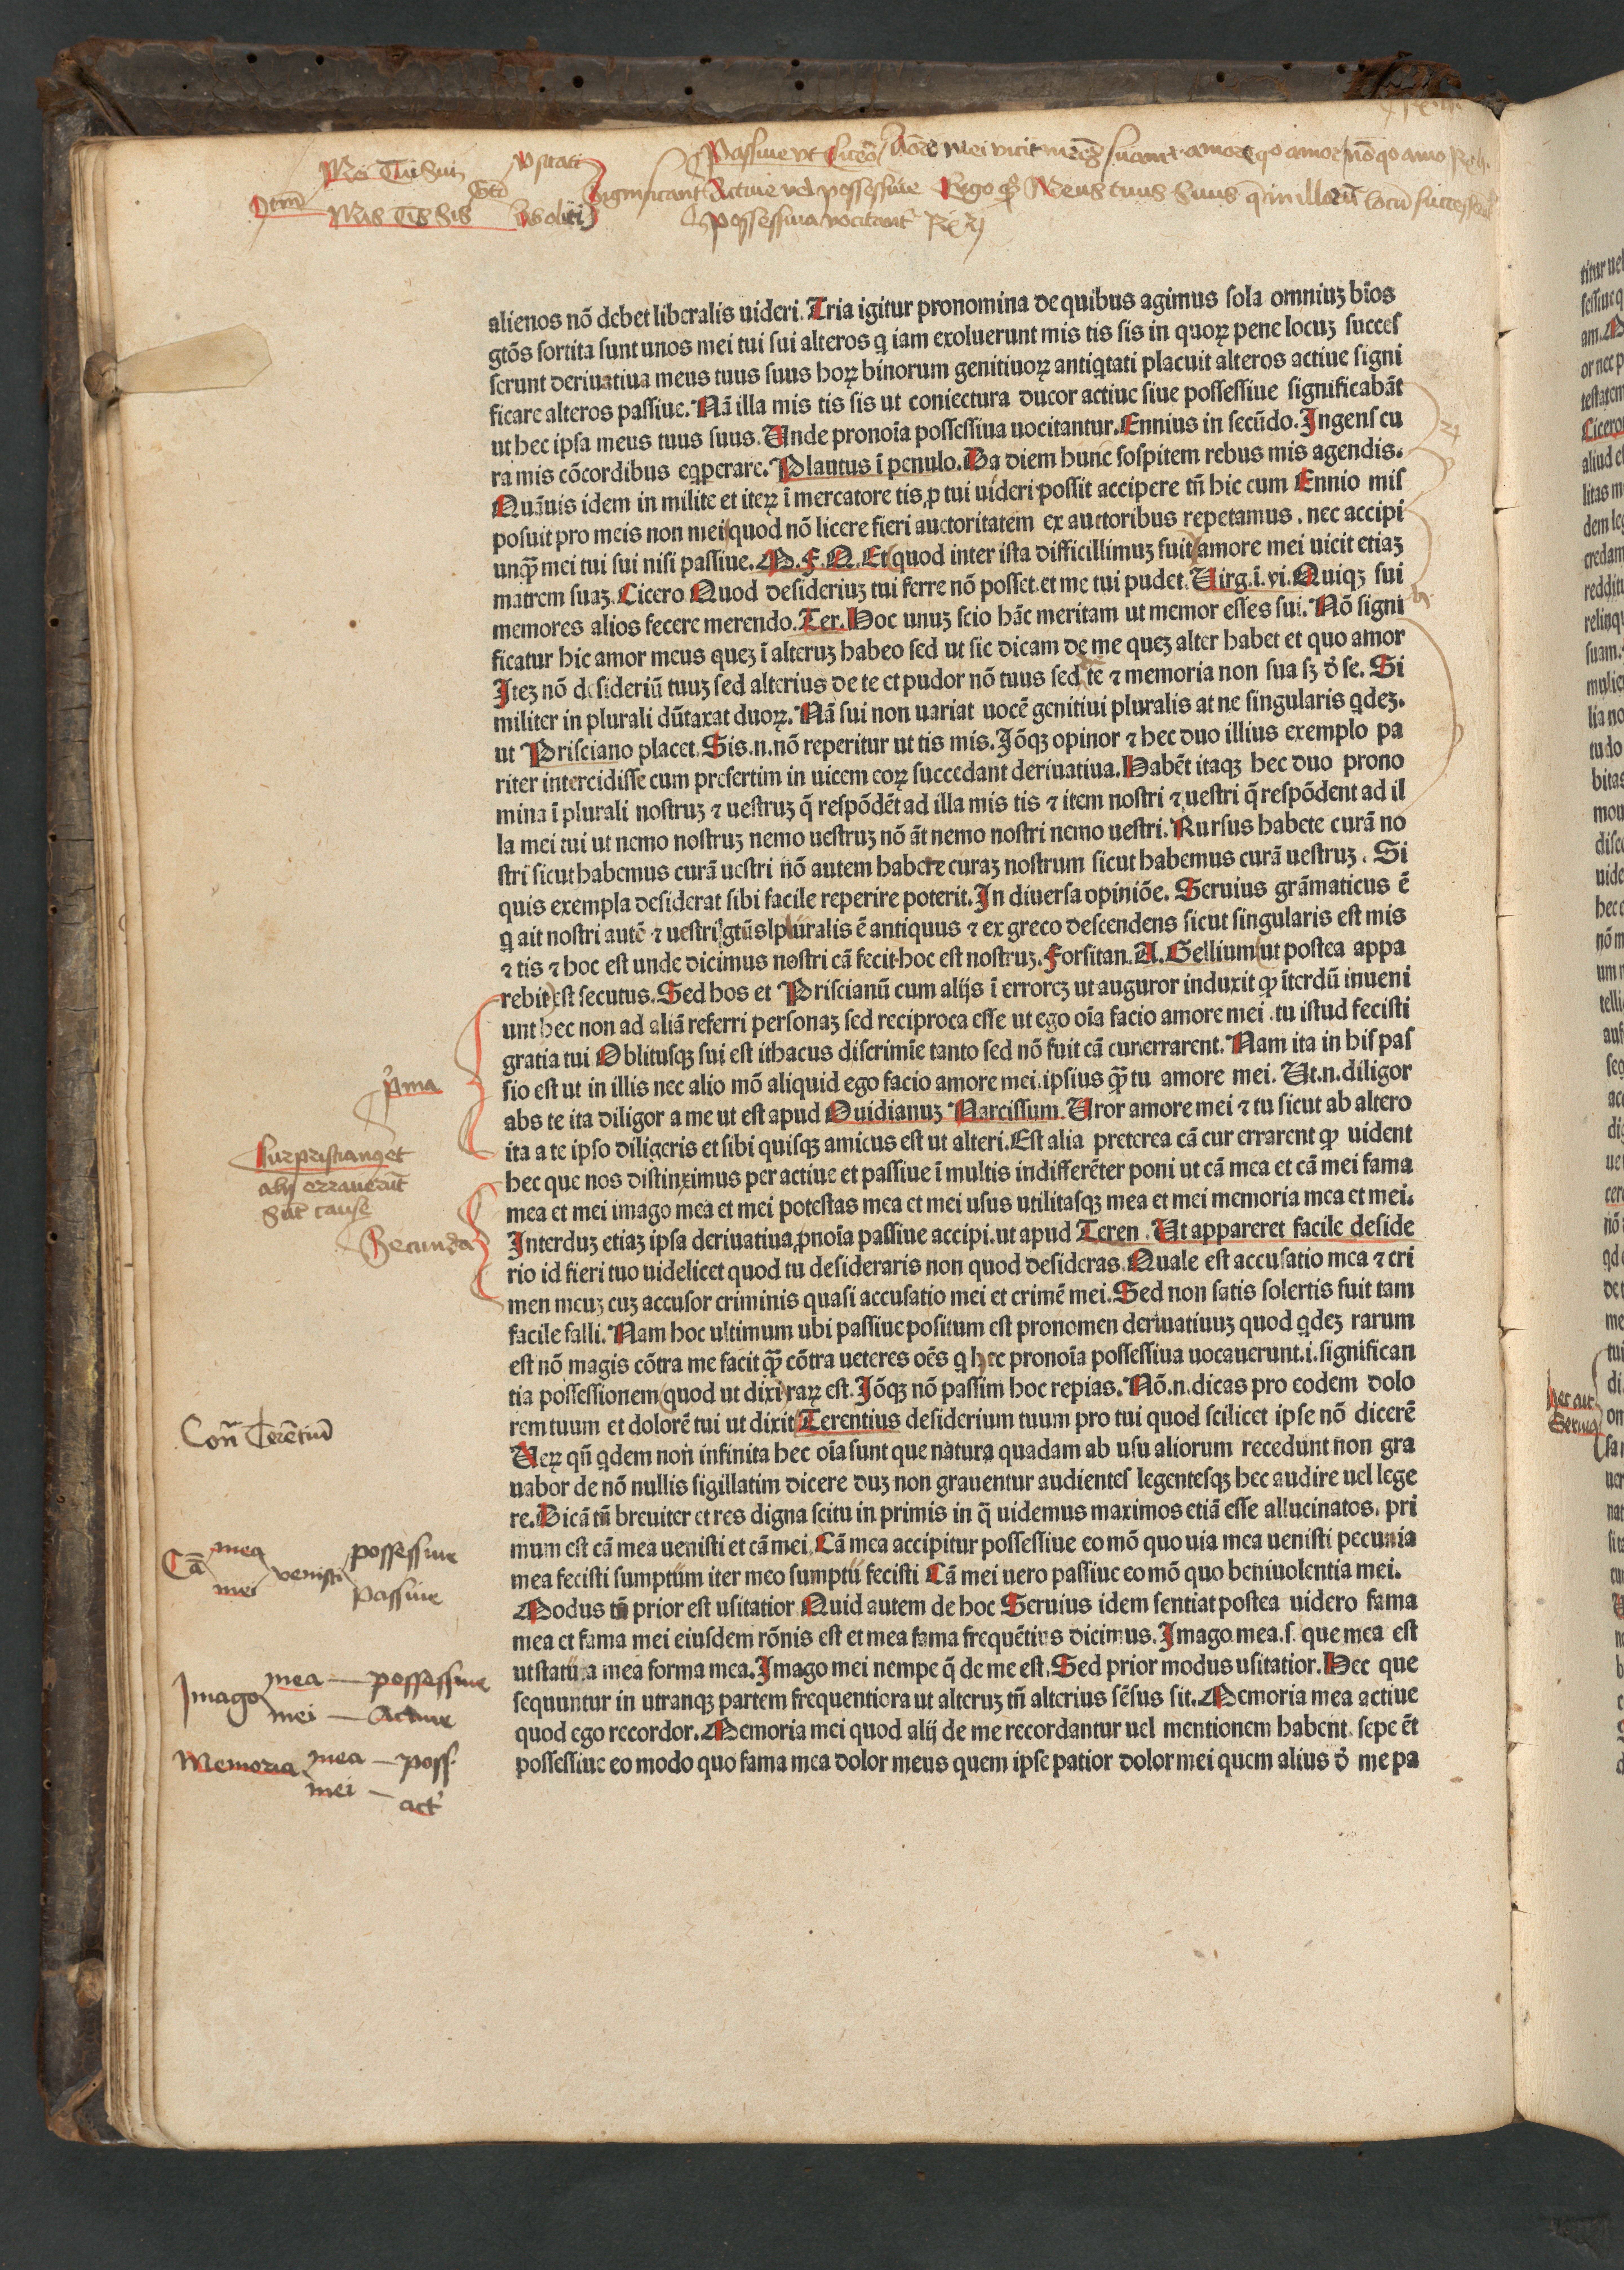 Mei Tui Sui
Mis Tis Sis
Usitati
Significant
Passiue vt
Actiue vel possessiue
possessiua vocitant
Meus tuus Suus
alienos nō debet liberalis uideri. Tria igitur pronomina de quibus agimus sola omniuꝫ bīos
gtōs sortita sunt unos mei tui sui alteros q iam exoluerunt mis tis sis in quoꝝ pene locuꝫ succeſ
serunt deriuatiua meus tuus suus hoꝝ binorum genitiuoꝝ antiqtati placuit alteros actiue signi
ficare alteros passiue. Nā illa mis tis sis ut coniectura ducor actiue siue possessiue significabāt
ut hec ipsa meus tuus suus. Unde pronoīa possessiua uocitantur. Ennius in secūdo. Ingenſ cu
ra mis cōcordibus eqperare. Plautus ī penulo. Da diem hunc sospitem rebus mis agendis.
Quāuis idem in milite et iteꝝ ī mercatore tis ꝓ tui uideri possit accipere tñ hic cum Ennio miſ
posuit pro meis non mei quod nō licere fieri auctoritatem ex auctoribus repetamus. nec accipi
unqꝫ mei tui sui nisi passiue. M. F. Q. Et quod inter ista difficillimuꝫ fuit amore mei uicit etiaꝫ
matrem suaꝫ. Cicero Quod desideriuꝫ tui ferre nō posset. et me tui pudet. Uirg. ī. vi. Quiqꝫ sui
memores alios fecere merendo. Ter. Hoc unuꝫ scio hāc meritam ut memor esses sui. Nō signi
ficatur hic amor meus queꝫ ī alteruꝫ habeo sed ut sic dicam de me queꝫ alter habet et quo amor
Iteꝫ nō desideriū tuuꝫ sed alterius de te et pudor nō tuus sed te ⁊ memoria non sua sꝫ d̄ se. Si
militer in plurali dūtaxat duoꝝ. Nā sui non uariat uocē genitiui pluralis at ne singularis qdeꝫ.
ut Prisciano placet. Sis. n. nō reperitur ut tis mis. Iōqꝫ opinor ⁊ hec duo illius exemplo pa
riter intercidisse cum presertim in uicem eoꝝ succedant deriuatiua. Habēt itaqꝫ hec duo prono
mina ī plurali nostruꝫ ⁊ uestruꝫ q̄ respōdēt ad illa mis tis ⁊ item nostri ⁊ uestri q̄ respōdent ad il
la mei tui ut nemo nostruꝫ nemo uestruꝫ nō āt nemo nostri nemo uestri. Rursus habete curā no
stri sicut habemus curā uestri nō autem habere curaꝫ nostrum sicut habemus curā uestruꝫ. Si
quis exempla desiderat sibi facile reperire poterit. In diuersa opiniōe. Seruius grāmaticus ē
q ait nostri autē ⁊ uestri gtūs pluralis ē antiquus ⁊ ex greco descendens sicut singularis est mis
⁊ tis ⁊ hoc est unde dicimus nostri cā fecit. hoc est nostruꝫ. Forsitan. A. Gellium ut postea appa
rebit est secutus. Sed hos et Priscianū cum alijs ī erroreꝫ ut auguror induxit ꝙ īterdū inueni
unt hec non ad aliā referri personaꝫ sed reciproca esse ut ego oīa facio amore mei. tu istud fecisti
gratia tui Oblitusqꝫ sui est ithacus discrimīe tanto sed nō fuit cā cur errarent. Nam ita in hiſ paſ
sio est ut in illis nec alio mō aliquid ego facio amore mei. ipsius qꝫ tu amore mei. Ut. n. diligor
abs te ita diligor a me ut est apud Ouidianuꝫ Narcissum. Uror amore mei ⁊ tu sicut ab altero
ita a te ipso diligeris et sibi quisqꝫ amicus est ut alteri. Est alia preterea cā cur errarent ꝙ uident
hec que nos distinximus per actiue et passiue ī multis indifferēter poni ut cā mea et cā mei fama
mea et mei imago mea et mei potestas mea et mei usus utilitasqꝫ mea et mei memoria mea et mei.
Interduꝫ etiaꝫ ipsa deriuatiua ꝓnoīa passiue accipi. ut apud Teren. Ut appareret facile deside
rio id fieri tuo uidelicet quod tu desideraris non quod desideras. Quale est accusatio mea ⁊ cri
men meuꝫ cuꝫ accusor criminis quasi accusatio mei et crimē mei. Sed non satis solertis fuit tam
facile falli. Nam hoc ultimum ubi passiue positum est pronomen deriuatiuuꝫ quod qdeꝫ rarum
est nō magis cōtra me facit qꝫ cōtra ueteres oēs q hec pronoīa possessiua uocauerunt. i. significan
tia possessionem quod ut dixi raꝝ est. Iōqꝫ nō passim hoc repias. Nō. n. dicas pro eodem dolo
rem tuum et dolorē tui ut dixit Terentius desiderium tuum pro tui quod scilicet ipse nō dicerē
Ueꝝ qñ qdem non infinita hec oīa sunt que natura quadam ab usu aliorum recedunt non gra
uabor de nō nullis sigillatim dicere duꝫ non grauentur audienteſ legentesqꝫ hec audire uel lege
re. Dicā tñ breuiter et res digna scitu in primis in q̄ uidemus maximos etiā esse allucinatos. pri
mum est cā mea uenisti et cā mei. Cā mea accipitur possessiue eo mō quo uia mea uenisti pecunia
mea fecisti sumptum iter meo sumptū fecisti Cā mei uero passiue eo mō quo beniuolentia mei.
Modus tñ prior est usitatior Quid autem de hoc Seruius idem sentiat postea uidero fama
mea et fama mei eiusdem rōnis est et mea fama frequētius dicimus. Imago mea. s. que mea est
ut statura mea forma mea. Imago mei nempe q̄ de me est. Sed prior modus usitatior. Hec que
sequuntur in utranqꝫ partem frequentiora ut alteruꝫ tñ alterius sēsus sit. Memoria mea actiue
quod ego recordor. Memoria mei quod alij de me recordantur uel mentionem habent. sepe ēt
possessiue eo modo quo fama mea dolor meus quem ipse patior dolor mei quem alius d̄ me pa
p̄ma
Cur priscianꝰ et
alij errauerūt
Sūt cause
Secunda
Coñ Terētiū
Cā mea mei venisti possessiue passiue
Imago mea — possessiue
mei — Actiue
Memoria mea — poss.
mei — act